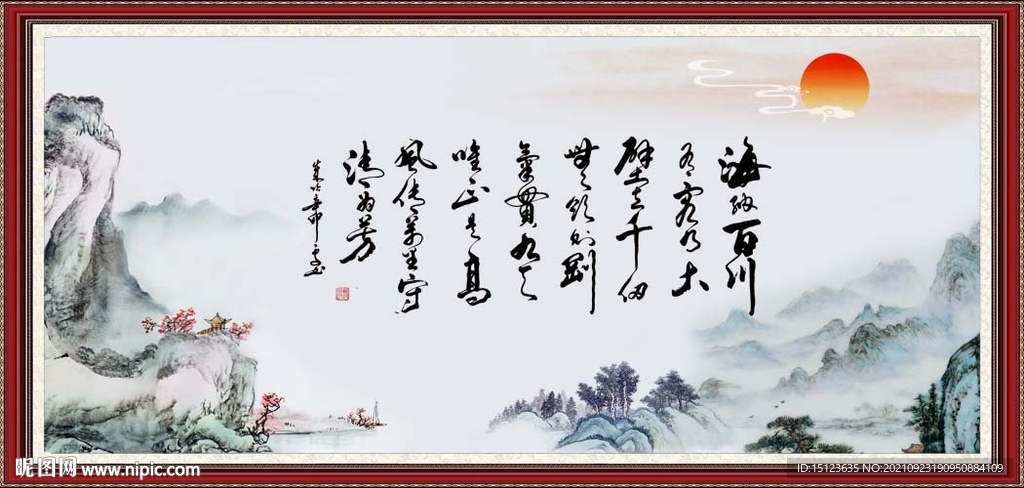 海纳百川
有容乃大
壁立千仞
無欲则刚
氣貫九天
唯正是高
風传萬里守
清为芳
昵图网 www.nipic.com
ID:15123635 NO:20210923190950884109